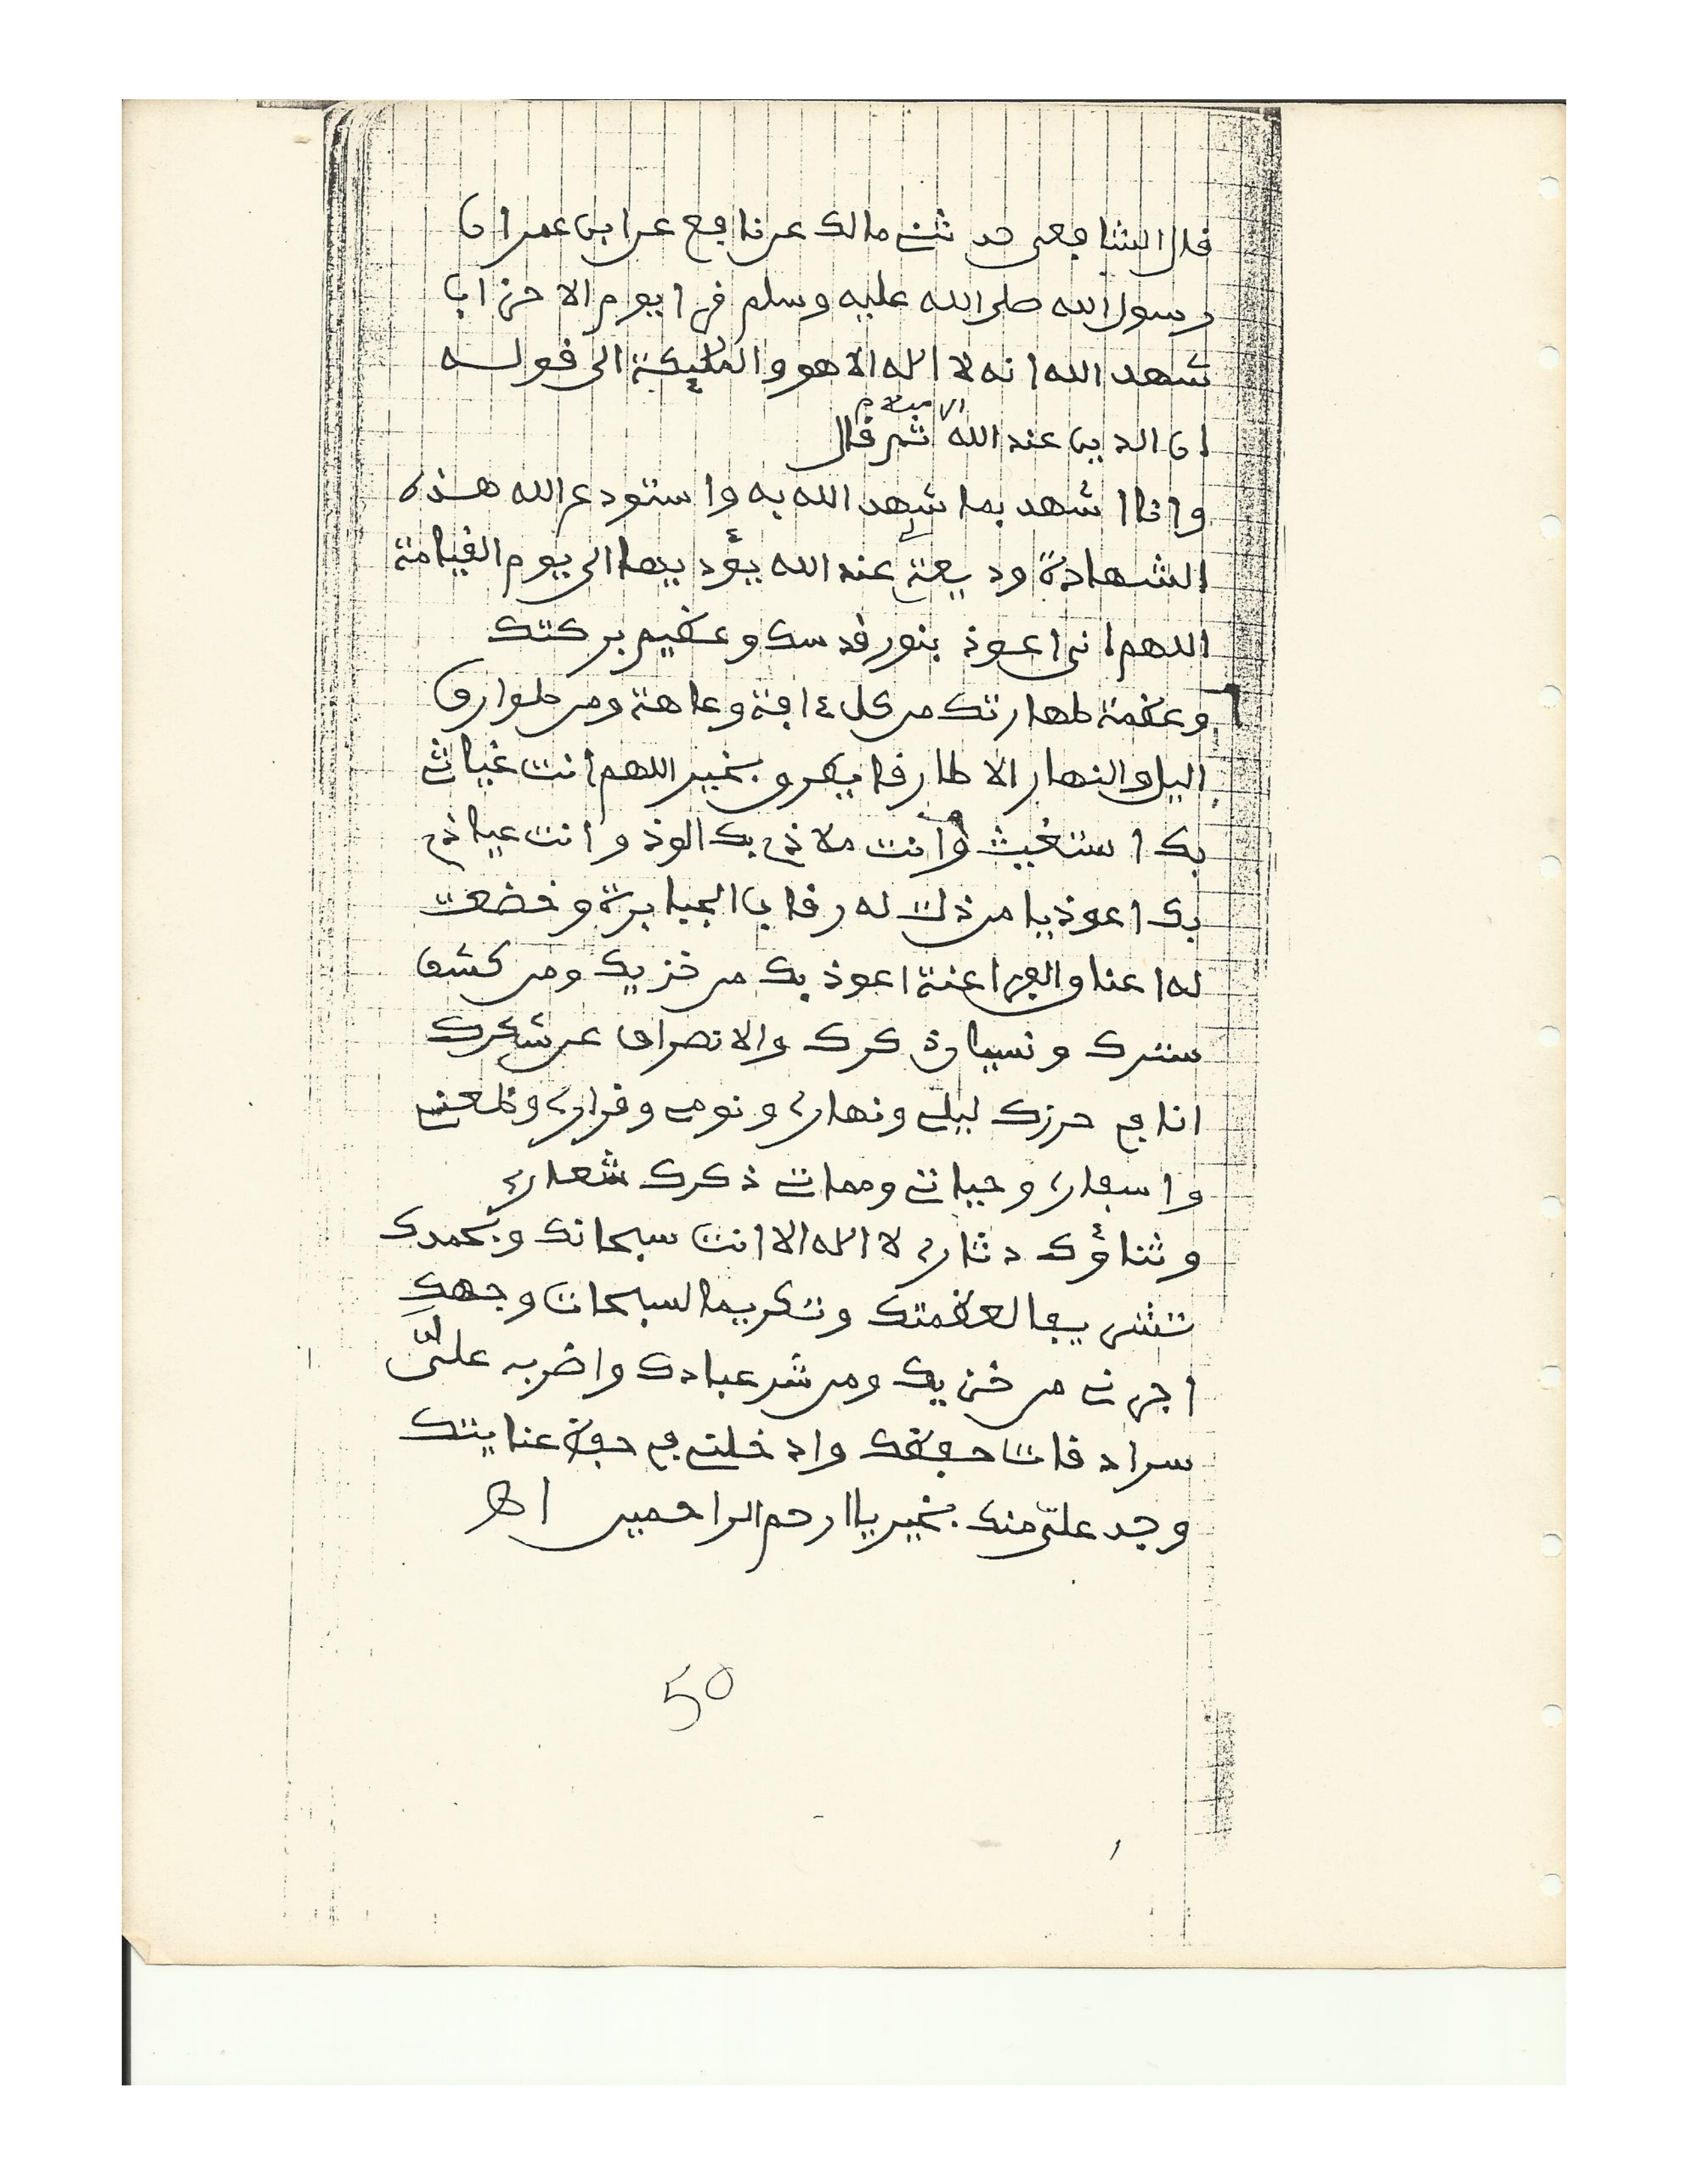 قال الشافعي حدثني مالك عن نافع عن ابن عمر ان
رسول الله صلى الله عليه وسلم قرا يوم الاحزاب
شهد الله انه لا اله الا هو والملئكة الى قوله
ان الدين عند الله الاسلام ثم قال
وانا اشهد بما شهد الله به واستودع الله هذه
الشهادة وديعة لي عند الله يؤديها الى يوم القيامة
اللهم اني اعوذ بنور قدسك وعظيم بركتك
وعظمة طهارتك من كل ءافة وعاهة ومن طوارق
اليل والنهار الا طارقا يطرق بخير اللهم انت غياثي
بك استغيث وانت ملاذي بك الوذ وانت عياذي
بك اعوذ يا من ذلت له رقاب الجبابرة وخضعت
له اعناق الفراعنة اعوذ بك من خزيك ومن كشف
سترك ونسيان ذكرك والانصراف عن شكرك
انا في حرزك ليلي ونهاري ونومي وقراري وظعني
واسفاري وحياتي ومماتي ذكرك شعاري
وثناؤك دثاري لا اله الا انت سبحانك وبحمدك
تشريفا لعظمتك وتكريما لسبحات وجهك
اجرني من خزيك ومن شر عبادك واضرب عليّ
سرادقات حفظك وادخلني في حفظ عنايتك
وجد عليّ منك بخير يا ارحم الراحمين اهـ
50